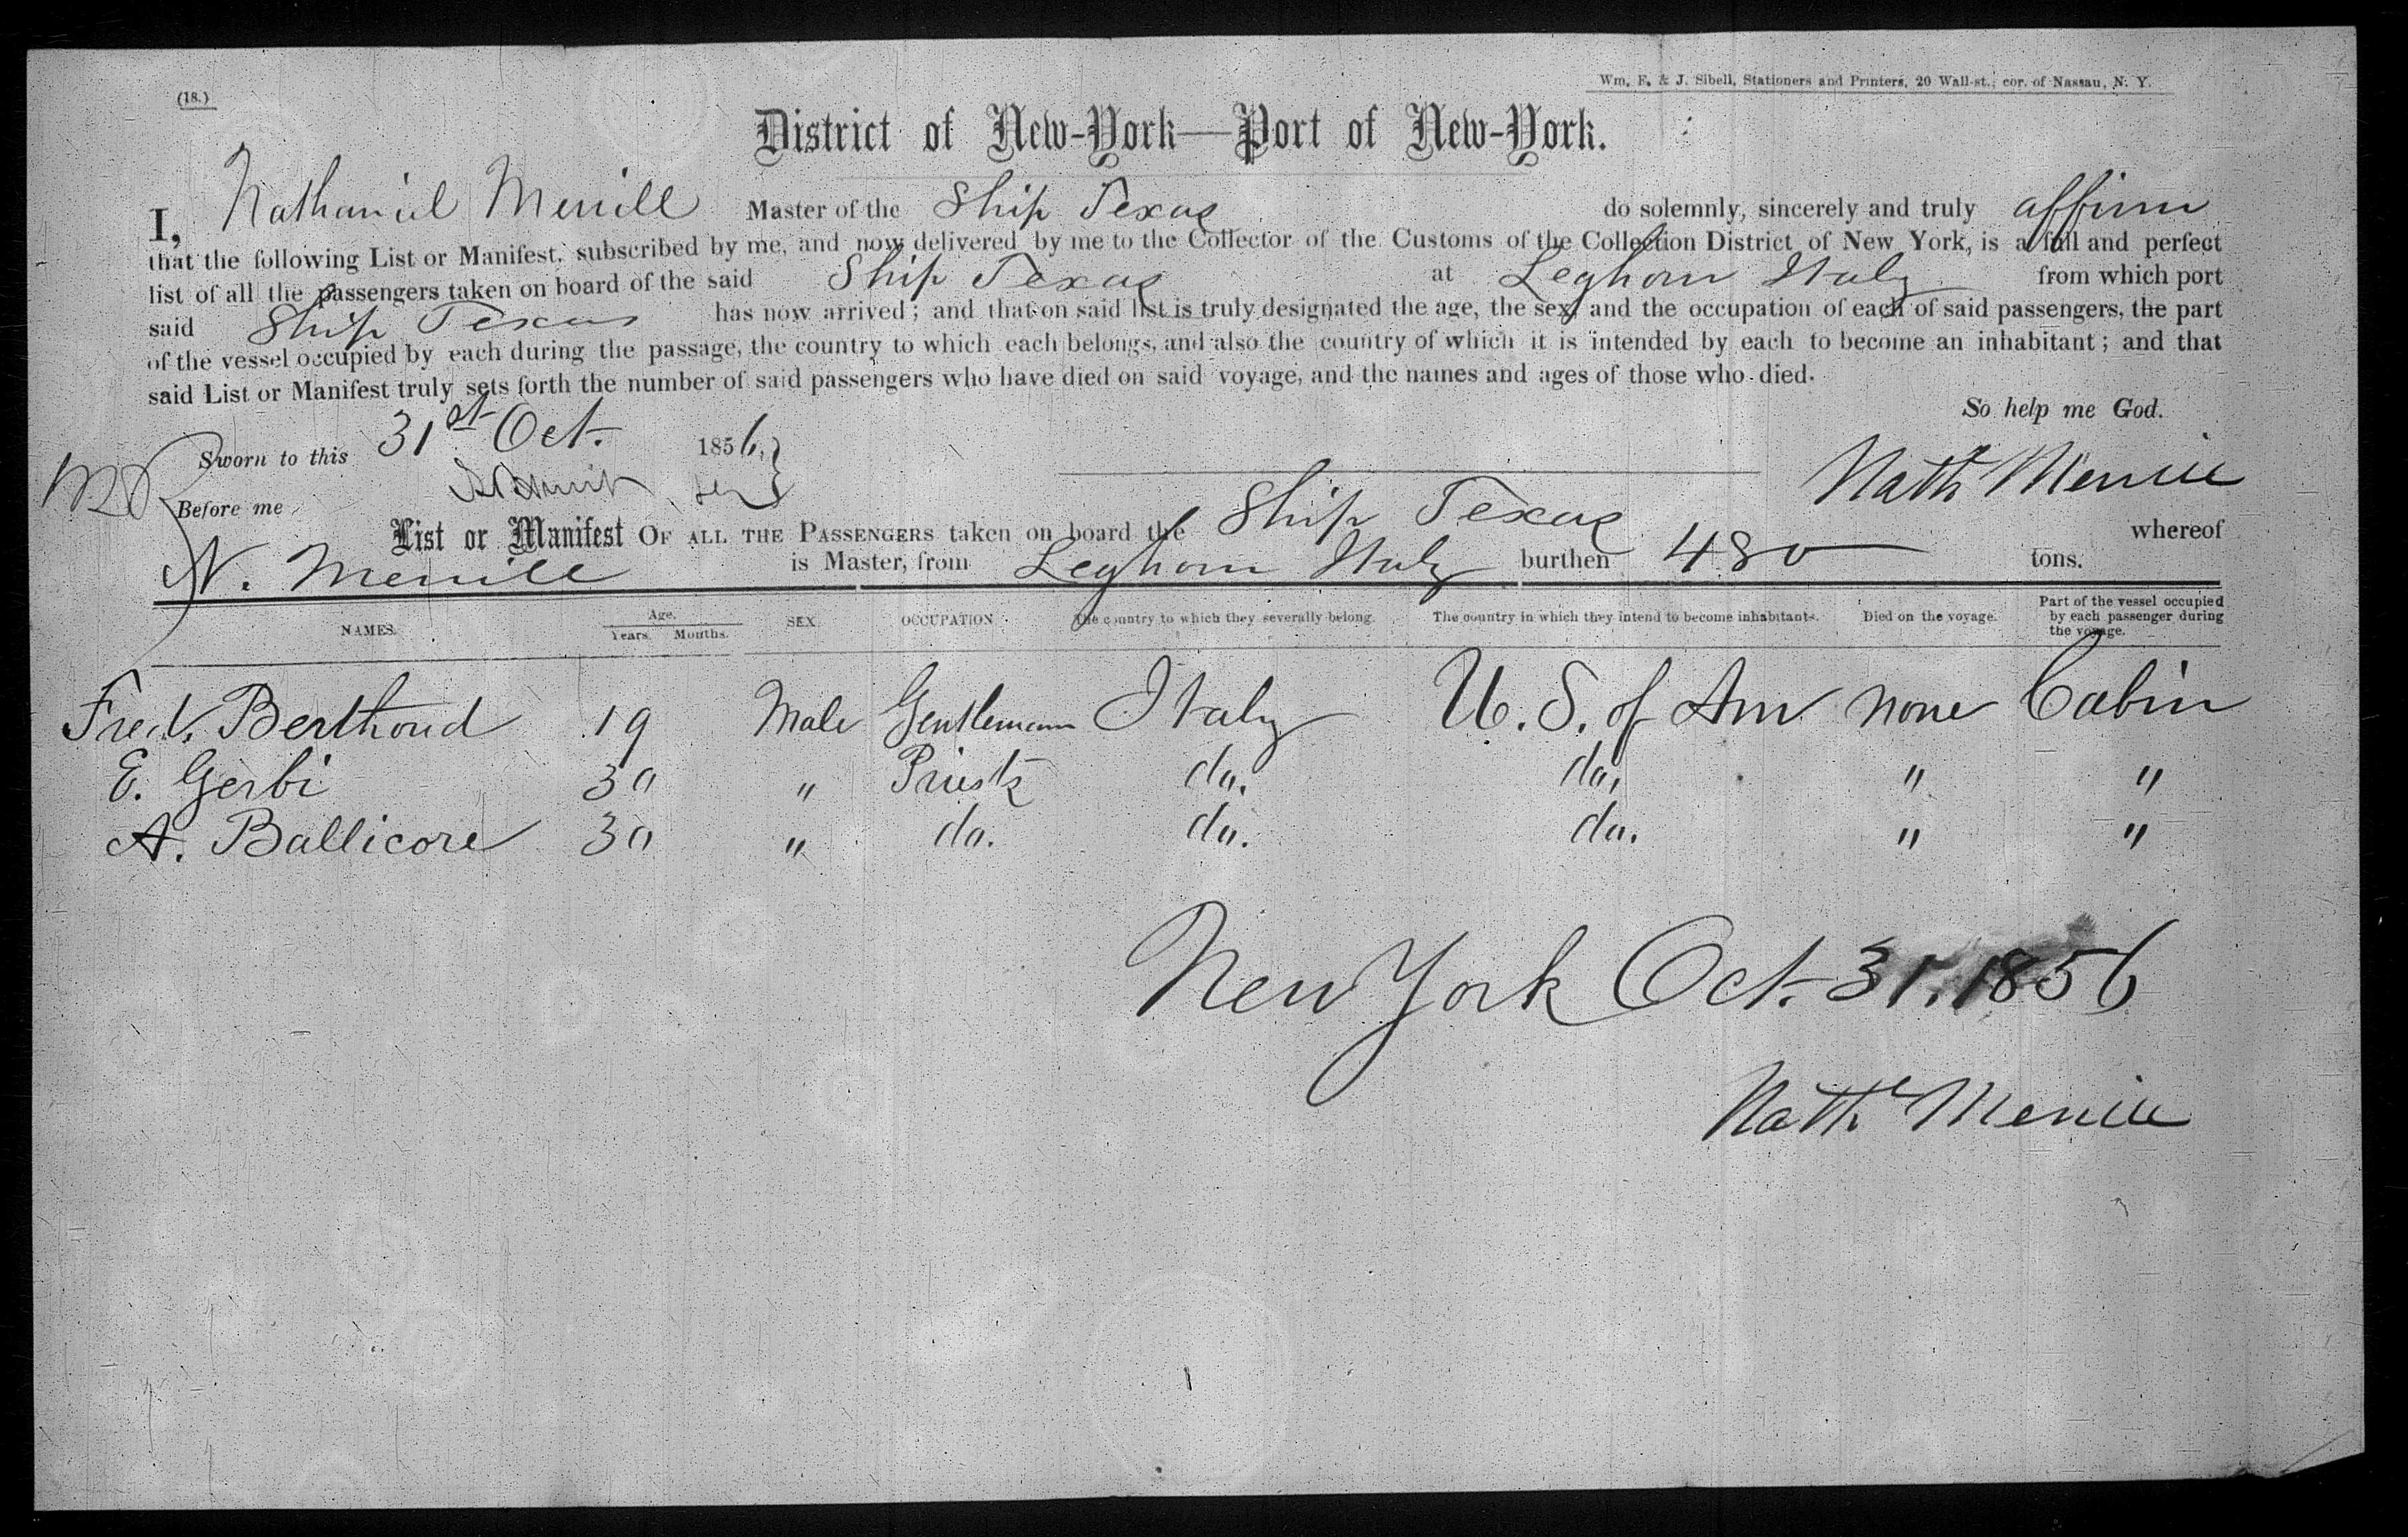 (18.)
Wm. E. & J. Sibell, Stationers and Printers, 20 Wall-st., cor. of Nassau, N. Y.
District of New-York—Port of New-York.
I, Nathaniel Merrill Master of the Ship Texas do solemnly, sincerely and truly affirm
that the following List or Manifest, subscribed by me, and now delivered by me to the Collector of the Customs of the Collection District of New York, is a full and perfect
list of all the passengers taken on board of the said Ship Texas at Leghorn Italy from which port
said Ship Texas has now arrived; and that on said list is truly designated the age, the sex, and the occupation of each of said passengers, the part
of the vessel occupied by each during the passage, the country to which each belongs, and also the country of which it is intended by each to become an inhabitant; and that
said List or Manifest truly sets forth the number of said passengers who have died on said voyage, and the names and ages of those who died.
So help me God.
Sworn to this 31st Oct. 1856,
Nathl Merrill
Before me
List or Manifest OF ALL THE PASSENGERS taken on board the Ship Texas whereof
N. Merrill is Master, from Leghorn Italy burthen 480 tons.
NAMES. Age. Years. Months. SEX. OCCUPATION. The country to which they severally belong. The country in which they intend to become inhabitants. Died on the voyage. Part of the vessel occupied by each passenger during the voyage.
Fred. Berthoud 19 Male Gentleman Italy U. S. of Am none Cabin
E. Gerbi 30 " Priest do. do. " "
A. Ballicore 30 " do. do. do. " "
New York Oct. 31. 1856
Nathl Merrill